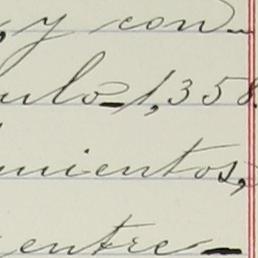 , y con-
ulo 1,358
mientos,
entre-